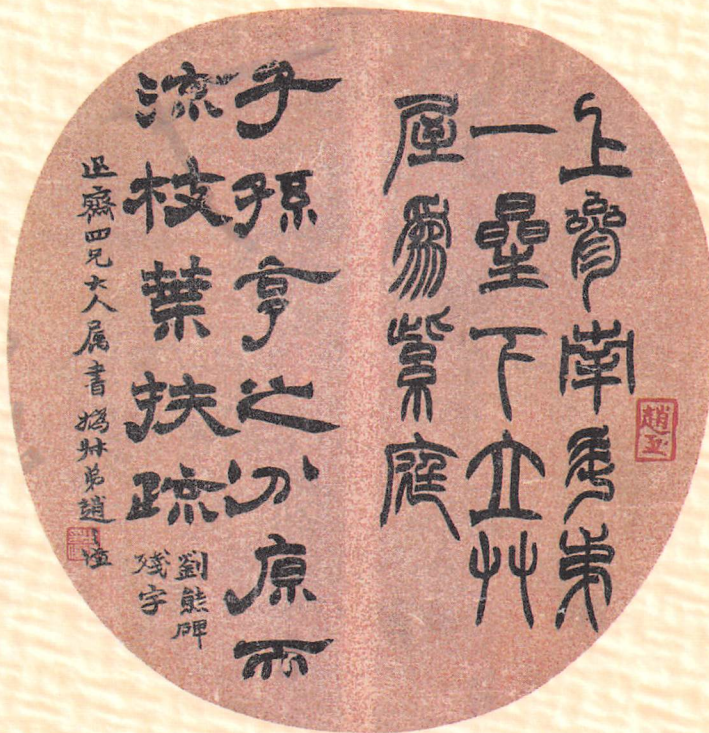 上參南斗弟
一曐下立艸
屋為紫庭
子孫亨之分原而
流枝葉扶疏
劉熊碑
殘字
齋四兄大人属書撝叔弟趙之謙
趙